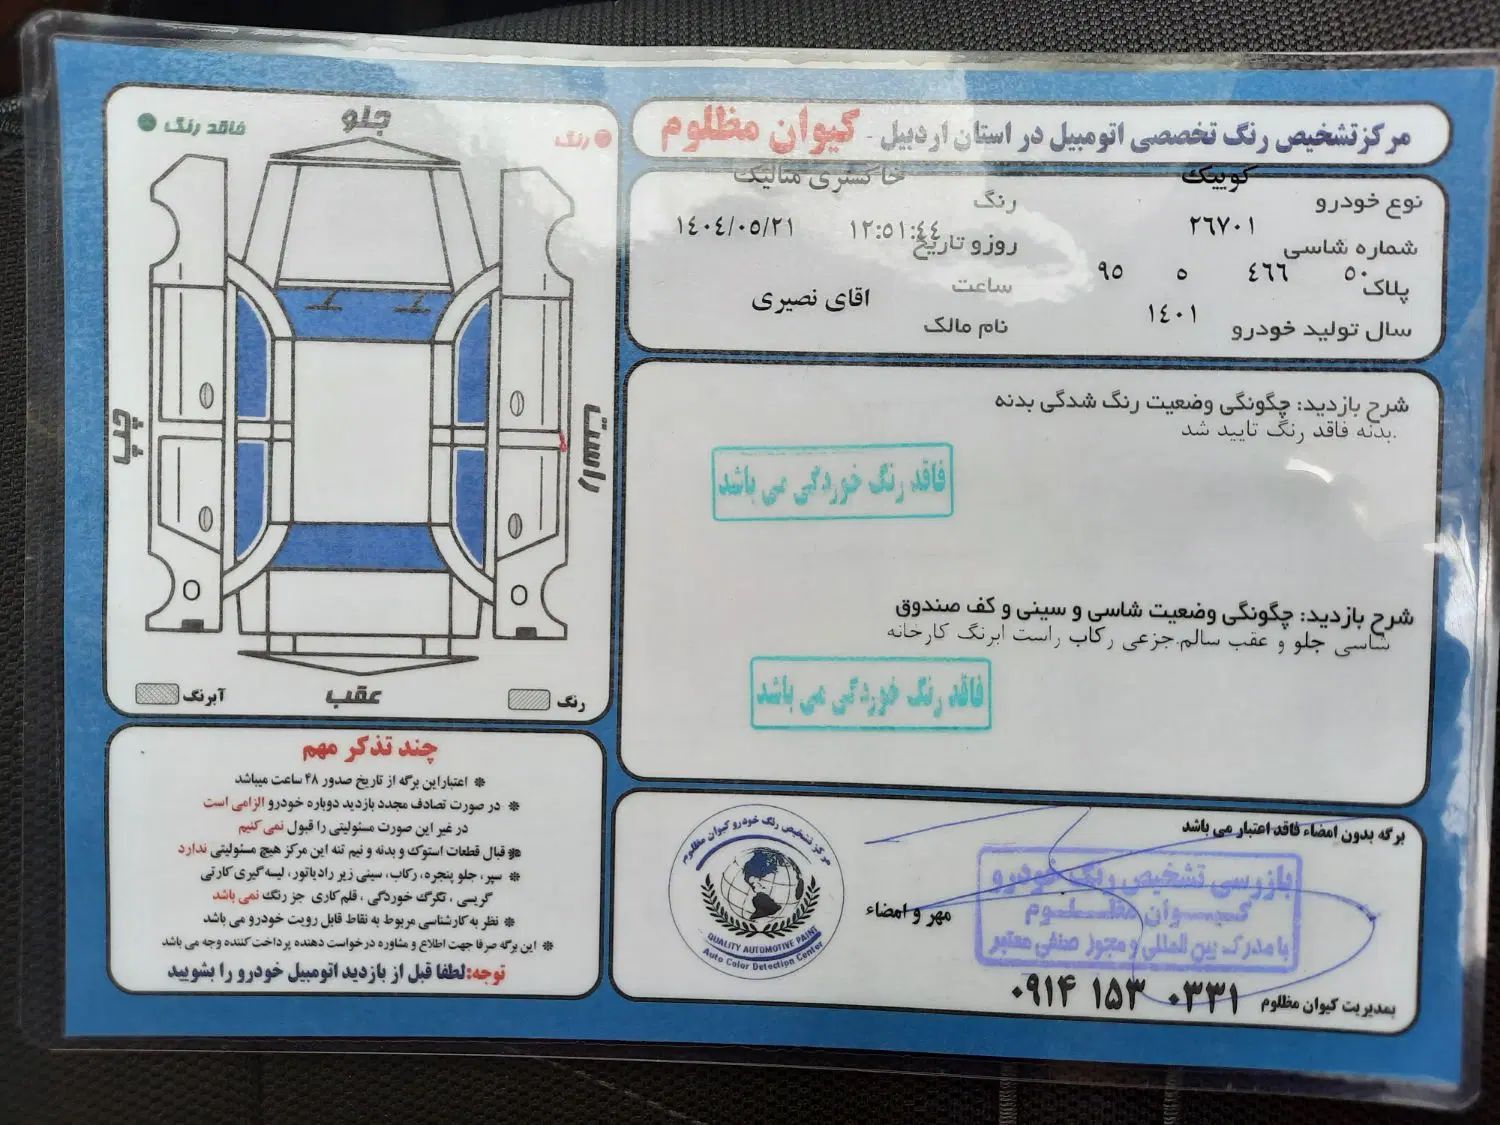 مرکز تشخیص رنگ تخصصی اتومبیل در استان اردبیل - کیوان مظلوم
نوع خودرو کوییک
رنگ خاکستری متالیک
شماره شاسی ۲۶۷۰۱
روز و تاریخ ۱۴۰۴/۰۵/۲۱ ۱۲:۵۱:٤٤
پلاک ۵۰ ٤٦٦ ۵ ۹۵
ساعت
سال تولید خودرو ۱٤۰۱
نام مالک اقای نصیری
شرح بازدید: چگونگی وضعیت رنگ شدگی بدنه
بدنه فاقد رنگ تایید شد.
فاقد رنگ خوردگی می باشد
شرح بازدید: چگونگی وضعیت شاسی و سینی و کف صندوق
شاسی جلو و عقب سالم.جزعی رکاب راست ابرنگ کارخانه
فاقد رنگ خوردگی می باشد
برگه بدون امضاء فاقد اعتبار می باشد
بازرسی تشخیص رنگ خودرو
کیوان مظلوم
با مدرک بین المللی و مجوز صنفی معتبر
مهر و امضاء
مرکز تشخیص رنگ خودرو کیوان مظلوم
QUALITY AUTOMOTIVE PAINT
Auto Color Detection Center
بمدیریت کیوان مظلوم ۰۹۱۴ ۱۵۳ ۰۳۳۱
رنگ
جلو
فاقد رنگ
راست
چپ
رنگ
عقب
آبرنگ
چند تذکر مهم
* اعتبار این برگه از تاریخ صدور ۴۸ ساعت میباشد
* در صورت تصادف مجدد بازدید دوباره خودرو الزامی است
در غیر این صورت مسئولیتی را قبول نمی کنیم
* قبال قطعات استوک و بدنه و نیم تنه این مرکز هیچ مسئولیتی ندارد
* سپر، جلو پنجره، رکاب، سینی زیر رادیاتور، لیسه گیری کارتی
گریسی ، تگرگ خوردگی ، قلم کاری جز رنگ نمی باشد
* نظر به کارشناسی مربوط به نقاط قابل رویت خودرو می باشد
* این برگه صرفا جهت اطلاع و مشاوره درخواست دهنده پرداخت کننده وجه می باشد
توجه: لطفا قبل از بازدید اتومبیل خودرو را بشویید